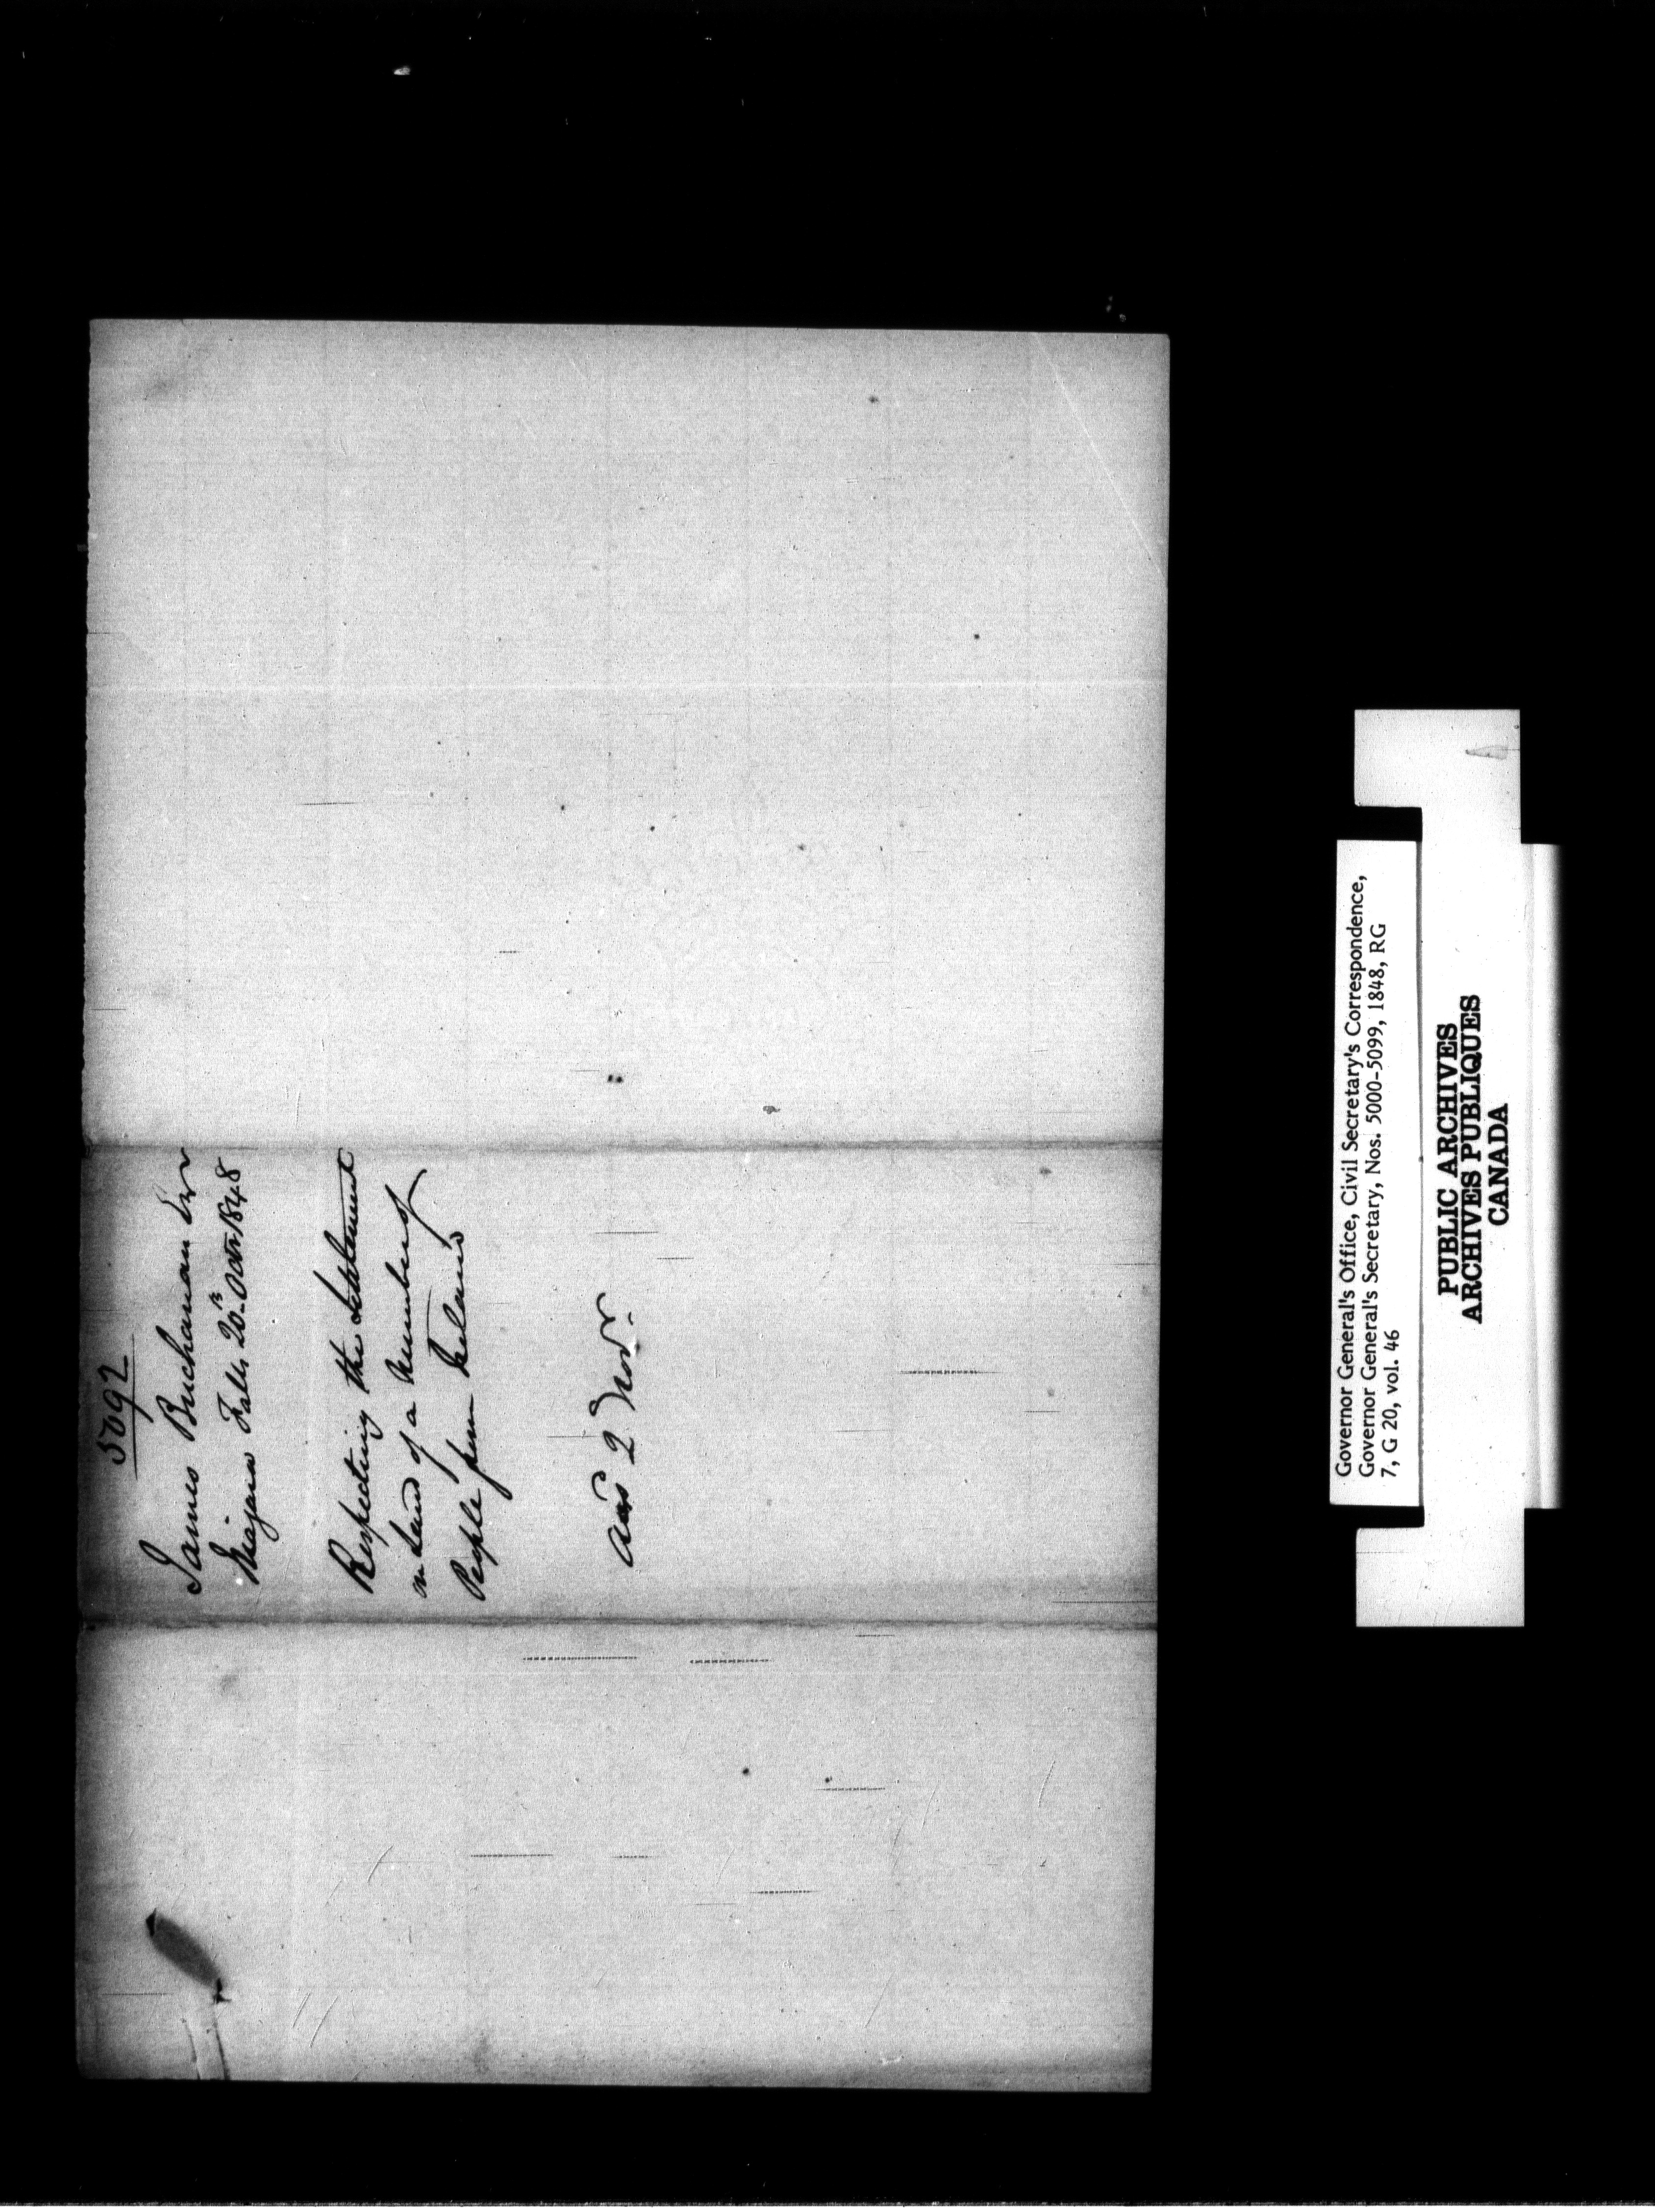 5092
James Buchanan Esqr
Niagara Falls 20th Octr 1848
Respecting the Settlement
on Land of a Number of
People from Ireland
Ansd 2 Novr.
Governor General's Office, Civil Secretary's Correspondence,
Governor General's Secretary, Nos. 5000-5099, 1848, RG
7, G 20, vol. 46
PUBLIC ARCHIVES
ARCHIVES PUBLIQUES
CANADA